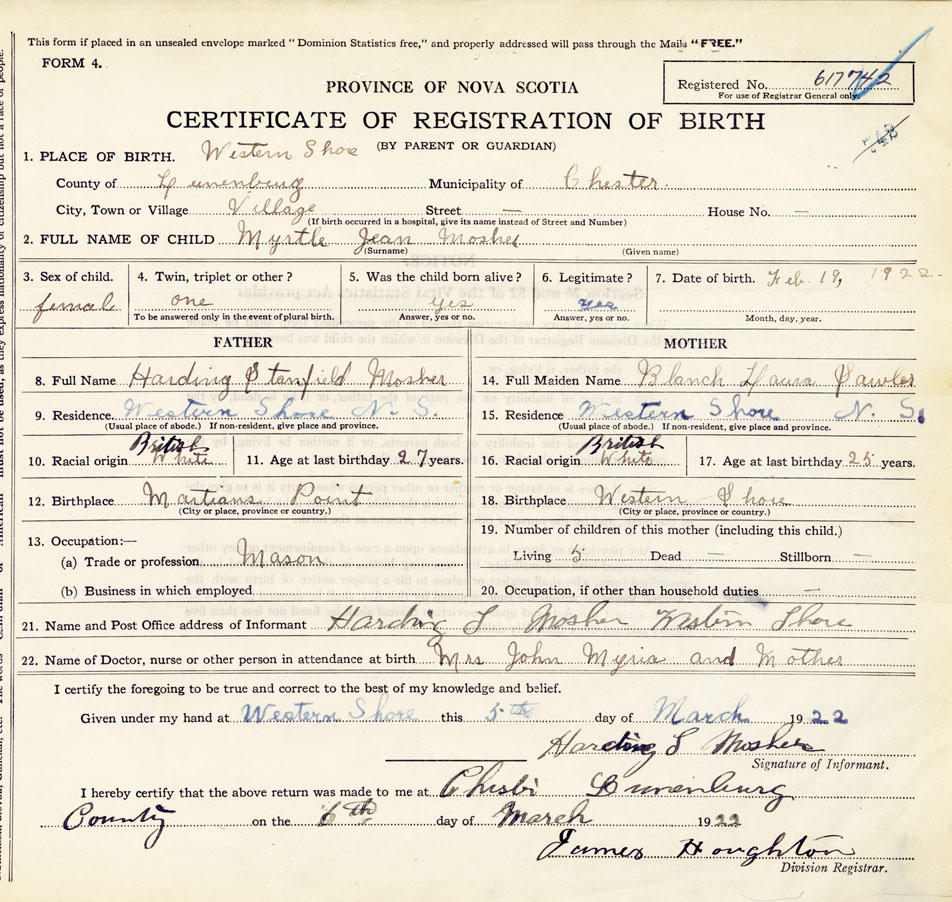 This form if placed in an unsealed envelope marked "Dominion Statistics free," and properly addressed will pass through the Mails "FREE."
FORM 4.
PROVINCE OF NOVA SCOTIA
Registered No. 617742
For use of Registrar General only.
CERTIFICATE OF REGISTRATION OF BIRTH
(BY PARENT OR GUARDIAN)
1. PLACE OF BIRTH. Western Shore
County of Lunenburg Municipality of Chester.
City, Town or Village Village Street — House No. —
(If birth occurred in a hospital, give its name instead of Street and Number)
2. FULL NAME OF CHILD Myrtle Jean Mosher
(Surname) (Given name)
3. Sex of child. 4. Twin, triplet or other? 5. Was the child born alive? 6. Legitimate? 7. Date of birth. Feb. 19, 1922.
female one yes yes
To be answered only in the event of plural birth. Answer, yes or no. Answer, yes or no. Month, day, year.
FATHER MOTHER
8. Full Name Harding Stanfield Mosher 14. Full Maiden Name Blanch Laura Sawler
9. Residence. Western Shore N. S. 15. Residence Western Shore N. S.
(Usual place of abode.) If non-resident, give place and province. (Usual place of abode.) If non-resident, give place and province.
British British
10. Racial origin White 11. Age at last birthday 27 years. 16. Racial origin White 17. Age at last birthday 25 years.
12. Birthplace Martians Point 18. Birthplace Western Shore
(City or place, province or country.) (City or place, province or country.)
13. Occupation:— 19. Number of children of this mother (including this child.)
(a) Trade or profession Mason Living 5 Dead — Stillborn —
(b) Business in which employed 20. Occupation, if other than household duties —
21. Name and Post Office address of Informant Harding S Mosher Western Shore
22. Name of Doctor, nurse or other person in attendance at birth Mrs John and Mother
I certify the foregoing to be true and correct to the best of my knowledge and belief.
Given under my hand at Western Shore this 5th day of March 1922
Harding S Mosher
Signature of Informant.
I hereby certify that the above return was made to me at Lunenburg
County on the 6th day of March 1922
James Houghton
Division Registrar.